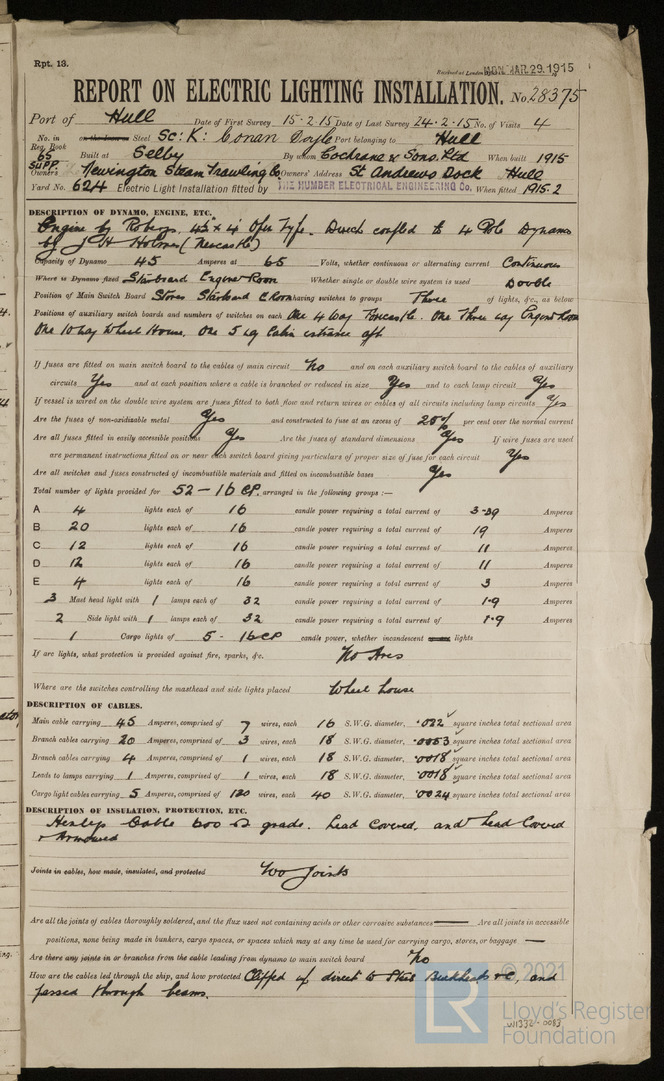 Rpt. 13.
Received at London MON. MAR. 29. 1915
REPORT ON ELECTRIC LIGHTING INSTALLATION. No. 28375
Port of Hull Date of First Survey 15-2-15 Date of Last Survey 24-2-15 No. of Visits 4
No. in Reg. Book on the Steel Sc: K: Conan Doyle Port belonging to Hull
65 SUPP Built at Selby By whom Cochrane & Sons. Ltd When built 1915
Owners Newington Steam Trawling Co Owners' Address St Andrews Dock Hull
Yard No. 624 Electric Light Installation fitted by THE HUMBER ELECTRICAL ENGINEERING Co. When fitted 1915-2
DESCRIPTION OF DYNAMO, ENGINE, ETC.
Engine by Robeys. 4½ x 4 Open Type. Direct coupled to 4 Pole Dynamo
by J H Holmes (Newcastle)
Capacity of Dynamo 45 Amperes at 65 Volts, whether continuous or alternating current Continuous
Where is Dynamo fixed Starboard Engine Room Whether single or double wire system is used Double
Position of Main Switch Board Stores Starboard E Room having switches to groups Three of lights, &c., as below
Positions of auxiliary switch boards and numbers of switches on each One 4 Way Forecastle. One Three way Engine Room
One 10 way Wheel House. One 5 way Cabin entrance aft
If fuses are fitted on main switch board to the cables of main circuit No and on each auxiliary switch board to the cables of auxiliary
circuits Yes and at each position where a cable is branched or reduced in size Yes and to each lamp circuit Yes
If vessel is wired on the double wire system are fuses fitted to both flow and return wires or cables of all circuits including lamp circuits Yes
Are the fuses of non-oxidizable metal Yes and constructed to fuse at an excess of 25% per cent over the normal current
Are all fuses fitted in easily accessible positions Yes Are the fuses of standard dimensions Yes If wire fuses are used
are permanent instructions fitted on or near each switch board giving particulars of proper size of fuse for each circuit Yes
Are all switches and fuses constructed of incombustible materials and fitted on incombustible bases Yes
Total number of lights provided for 52 - 16 CP. arranged in the following groups :—
A 4 lights each of 16 candle power requiring a total current of 3-89 Amperes
B 20 lights each of 16 candle power requiring a total current of 19 Amperes
C 12 lights each of 16 candle power requiring a total current of 11 Amperes
D 12 lights each of 16 candle power requiring a total current of 11 Amperes
E 4 lights each of 16 candle power requiring a total current of 3 Amperes
3 Mast head light with 1 lamps each of 32 candle power requiring a total current of 1-9 Amperes
2 Side light with 1 lamps each of 32 candle power requiring a total current of 1-9 Amperes
1 Cargo lights of 5 - 16 CP candle power, whether incandescent lights
If arc lights, what protection is provided against fire, sparks, &c. No Arcs
Where are the switches controlling the masthead and side lights placed Wheel house
DESCRIPTION OF CABLES.
Main cable carrying 45 Amperes, comprised of 7 wires, each 16 S.W.G. diameter, .022 square inches total sectional area
Branch cables carrying 20 Amperes, comprised of 3 wires, each 18 S.W.G. diameter, .0053 square inches total sectional area
Branch cables carrying 4 Amperes, comprised of 1 wires, each 18 S.W.G. diameter, .0018 square inches total sectional area
Leads to lamps carrying 1 Amperes, comprised of 1 wires, each 18 S.W.G. diameter, .0018 square inches total sectional area
Cargo light cables carrying 5 Amperes, comprised of 120 wires, each 40 S.W.G. diameter, .0024 square inches total sectional area
DESCRIPTION OF INSULATION, PROTECTION, ETC.
Henleys Cable 600 Ω grade. Lead Covered, and Lead Covered
& Armoured
Joints in cables, how made, insulated, and protected No Joints
Are all the joints of cables thoroughly soldered, and the flux used not containing acids or other corrosive substances — Are all joints in accessible
positions, none being made in bunkers, cargo spaces, or spaces which may at any time be used for carrying cargo, stores, or baggage —
Are there any joints in or branches from the cable leading from dynamo to main switch board No
How are the cables led through the ship, and how protected Clipped up direct to Steel Bulkheads &c, and
passed through beams.
© 2021
LR
Lloyd's Register
Foundation
W1332-0083